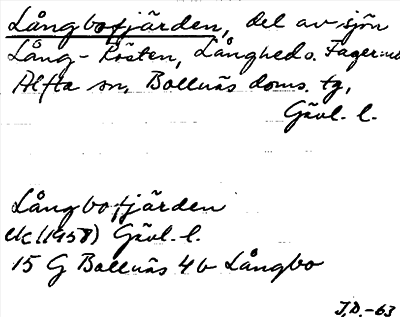 Långbofjärden, del av sjön
Lång-Rösten, Långheds. Fagernäs
Alfta sn, Bollnäs doms. tg,
Gävl. l.
Långbofjärden
ek (1958) Gävl. l.
15 G Bollnäs 4b Långbo
J.D.-63